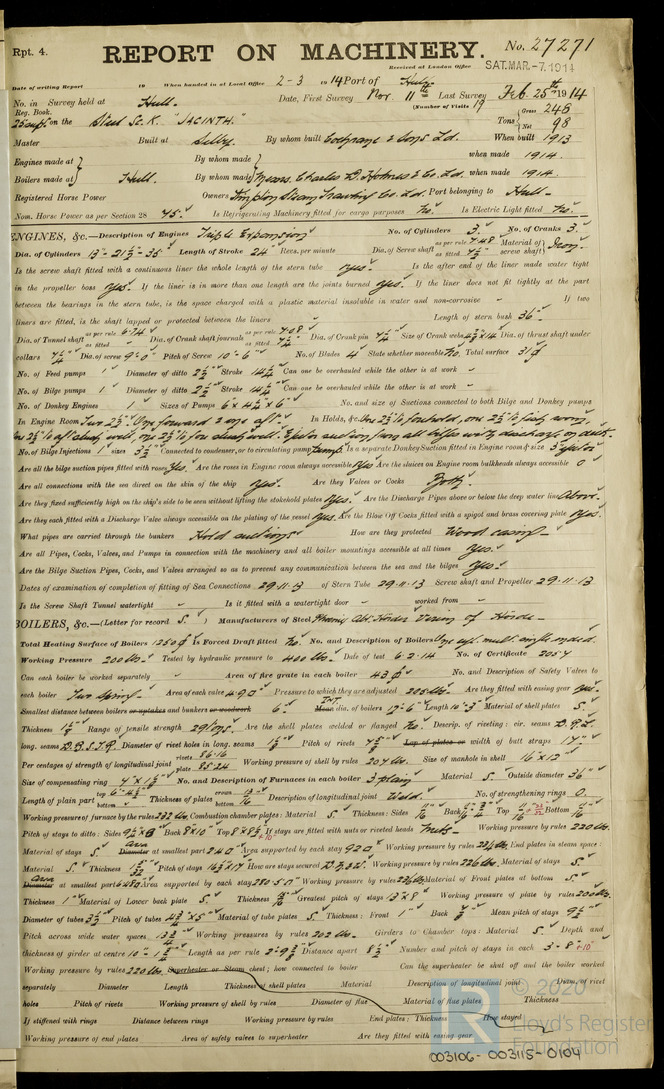 Rpt. 4.
REPORT ON MACHINERY.
No. 27271
Received at London Office
SAT. MAR - 7. 1914
Date of writing Report 19 When handed in at Local Office 2 - 3 1914 Port of Hull
No. in Survey held at Hull. Date, First Survey Nov. 11th Last Survey Feb. 25th 1914
Reg. Book. (Number of Visits 19
on the Steel Sc. K. "JACINTH." Tons Gross 246 Net 98
Master Built at Selby. By whom built Cochrane & Sons Ld. When built 1913
Engines made at By whom made when made 1914.
Boilers made at Hull. By whom made Messrs. Charles D. Holmes & Co. Ld. when made 1914.
Registered Horse Power Owners Kingston Steam Trawling Co. Ld. Port belonging to Hull
Nom. Horse Power as per Section 28 45. Is Refrigerating Machinery fitted for cargo purposes No. Is Electric Light fitted No.
ENGINES, &c.—Description of Engines Triple Expansion No. of Cylinders 3. No. of Cranks 3.
Dia. of Cylinders 13" - 21½" - 35" Length of Stroke 24" Revs. per minute Dia. of Screw shaft as per rule 7.48 as fitted 7½" Material of screw shaft Iron.
Is the screw shaft fitted with a continuous liner the whole length of the stern tube Yes. Is the after end of the liner made water tight
in the propeller boss Yes. If the liner is in more than one length are the joints burned Yes. If the liner does not fit tightly at the part
between the bearings in the stern tube, is the space charged with a plastic material insoluble in water and non-corrosive If two
liners are fitted, is the shaft lapped or protected between the liners Length of stern bush 36"
Dia. of Tunnel shaft as per rule 6.74 as fitted Dia. of Crank shaft journals as per rule 7.08 as fitted 7¼" Dia. of Crank pin 7¼" Size of Crank webs Dia. of thrust shaft under
collars 7¼" Dia. of screw 9'-0" Pitch of Screw 10'-6" No. of Blades 4 State whether moveable No. Total surface 31
No. of Feed pumps 1 Diameter of ditto 2½" Stroke 14¼" Can one be overhauled while the other is at work
No. of Bilge pumps 1 Diameter of ditto 2½" Stroke 14¼" Can one be overhauled while the other is at work
No. of Donkey Engines 1 Sizes of Pumps 6" x 4¼" x 6" No. and size of Suctions connected to both Bilge and Donkey pumps
In Engine Room Two 2½". One forward & one aft. In Holds, &c. One 2½" forehold, one 2½" fish room,
one 2½" aft slush well, one 2½" for slush well. Ejector suction from all bilges with discharge on deck.
No. of Bilge Injections 1 sizes 3½" Connected to condenser, or to circulating pump Pump. Is a separate Donkey Suction fitted in Engine room & size
Are all the bilge suction pipes fitted with roses Yes. Are the roses in Engine room always accessible Yes Are the sluices on Engine room bulkheads always accessible 0
Are all connections with the sea direct on the skin of the ship Yes. Are they Valves or Cocks Both.
Are they fixed sufficiently high on the ship's side to be seen without lifting the stokehold plates Yes. Are the Discharge Pipes above or below the deep water line Above.
Are they each fitted with a Discharge Valve always accessible on the plating of the vessel Yes. Are the Blow Off Cocks fitted with a spigot and brass covering plate Yes.
What pipes are carried through the bunkers Hold suctions How are they protected Wood casing
Are all Pipes, Cocks, Valves, and Pumps in connection with the machinery and all boiler mountings accessible at all times Yes.
Are the Bilge Suction Pipes, Cocks, and Valves arranged so as to prevent any communication between the sea and the bilges Yes.
Dates of examination of completion of fitting of Sea Connections 29-11-13 of Stern Tube 29-11-13 Screw shaft and Propeller 29-11-13
Is the Screw Shaft Tunnel watertight Is it fitted with a watertight door worked from
BOILERS, &c.—(Letter for record S.) Manufacturers of Steel Phoenix Abt. Hörder Verein of Hörde
Total Heating Surface of Boilers 1250 Is Forced Draft fitted No. No. and Description of Boilers One cyl. mult. single ended.
Working Pressure 200 lbs. Tested by hydraulic pressure to 400 lbs. Date of test 6-2-14 No. of Certificate 2057
Can each boiler be worked separately Area of fire grate in each boiler 43 No. and Description of Safety Valves to
each boiler Two Spring Area of each valve 4.90 Pressure to which they are adjusted 205 lbs. Are they fitted with easing gear Yes.
Smallest distance between boilers or uptakes and bunkers or woodwork 6" Mean dia. of boilers 13'-6" Length 10'-3" Material of shell plates S.
Thickness Range of tensile strength 29/ tons. Are the shell plates welded or flanged No. Descrip. of riveting: cir. seams D.R.L.
long. seams D.B.S.T.R. Diameter of rivet holes in long. seams Pitch of rivets Lap of plates or width of butt straps 17"
Per centages of strength of longitudinal joint rivets 86.16 plate 85.24 Working pressure of shell by rules 204 lbs. Size of manhole in shell 16" x 12"
Size of compensating ring No. and Description of Furnaces in each boiler 3 plain Material S. Outside diameter 36"
Length of plain part top bottom Thickness of plates crown bottom Description of longitudinal joint Weld. No. of strengthening rings 0.
Working pressure of furnace by the rules 232 lbs Combustion chamber plates: Material S. Thickness: Sides Back Top Bottom
Pitch of stays to ditto: Sides Back 8 x 10" Top If stays are fitted with nuts or riveted heads Nuts. Working pressure by rules 220 lbs.
Material of stays S. Diameter at smallest part 2.40 Area supported by each stay 92.0 Working pressure by rules End plates in steam space:
Material S. Thickness Pitch of stays How are stays secured Working pressure by rules 226 lbs. Material of stays S.
Diameter at smallest part Area supported by each stay Working pressure by rules Material of Front plates at bottom S.
Thickness 1" Material of Lower back plate S. Thickness Greatest pitch of stays 13" x 8" Working pressure of plate by rules 200 lbs.
Diameter of tubes 3½" Pitch of tubes Material of tube plates S. Thickness: Front 1" Back Mean pitch of stays
Pitch across wide water spaces Working pressures by rules 202 lbs. Girders to Chamber tops: Material S. Depth and
thickness of girder at centre Length as per rule Distance apart 8½ Number and pitch of stays in each 3 - 8"
Working pressure by rules 220 lbs. Superheater or Steam chest; how connected to boiler Can the superheater be shut off and the boiler worked
separately Diameter Length Thickness of shell plates Material Description of longitudinal joint Diam. of rivet
holes Pitch of rivets Working pressure of shell by rules Diameter of flue Material of flue plates Thickness
If stiffened with rings Distance between rings Working pressure by rules End plates: Thickness How stayed
Working pressure of end plates Area of safety valves to superheater Are they fitted with easing gear
© 2020
Lloyd's Register
Foundation
003106-003115-0104